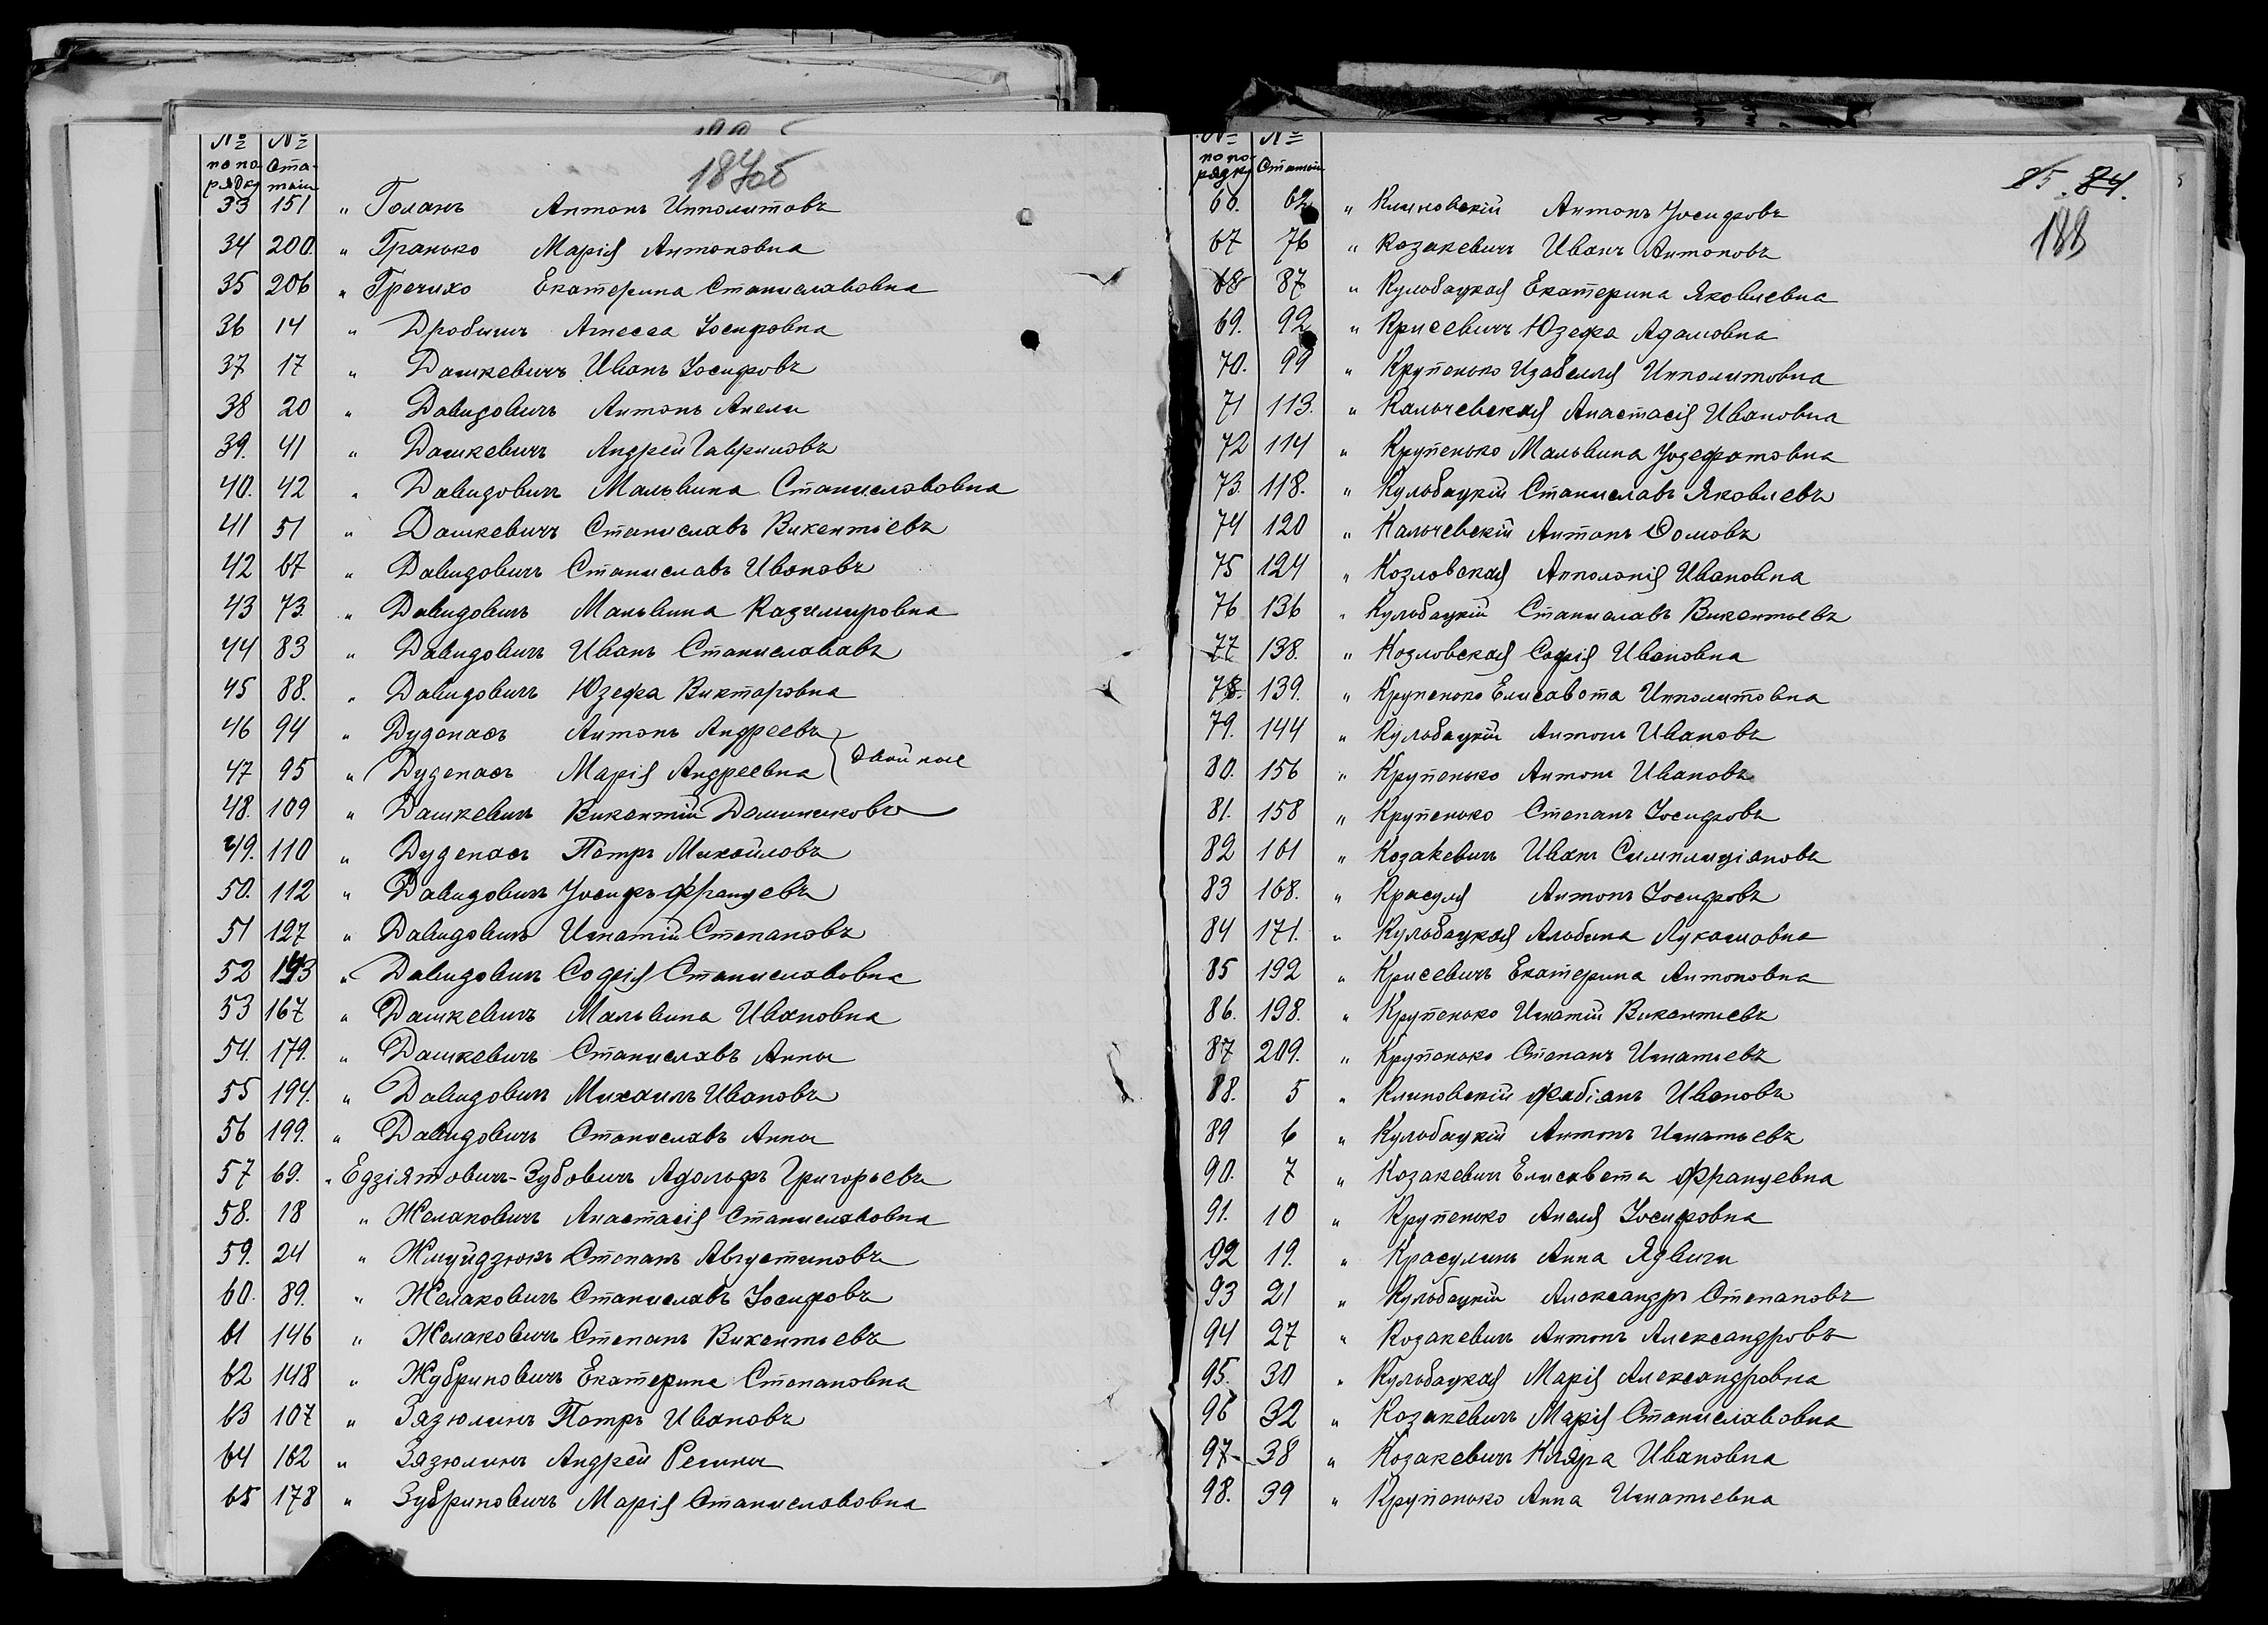 187об
№ по порядку № Статьи
33 151 " Голанъ Антонъ Ипполитовъ
34 200. " Гранько Марія Антоновна
35 206 " Гречихо Екатерина Станиславовна
36 14 " Дробишъ Агнесса Іосифовна
37 17 " Дашкевичъ Иванъ Іосифовъ
38 20 " Давидовичъ Антонъ Анели
39. 41 " Дашкевичъ Андрей Гавриловъ
40. 42 " Давидовичъ Мальвина Станиславовна
41 51 " Дашкевичъ Станиславъ Викентіевъ
42 67 " Давидовичъ Станиславъ Ивановъ
43 73. " Давидовичъ Мальвина Казимировна
44 83 " Давидовичъ Иванъ Станиславовъ
45 88. " Давидовичъ Юзефа Викторовна
46 94 " Дуденасъ Антонъ Андреевъ } двойные
47 95 " Дуденасъ Марія Андреевна
48. 109 " Дашкевичъ Викентій Доминиковъ
49. 110 " Дуденасъ Петръ Михайловъ
50. 112 " Давидовичъ Іосифъ Францевъ
51 127 " Давидовичъ Игнатій Степановъ
52 " Давидовичъ Софія Станиславовна
53 167 " Дашкевичъ Мальвина Ивановна
54. 179. " Дашкевичъ Станиславъ Анны
55 194. " Давидовичъ Михаилъ Ивановъ
56 199. " Давидовичъ Станиславъ Анны
57 69. " Едзіятовичъ-Зубовичъ Адольфъ Григорьевъ
58. 18 " Желаковичъ Анастасія Станиславовна
59. 24 " Жмуйдзюкъ Степанъ Августиновъ
60. 89. " Желаковичъ Станиславъ Іосифовъ
61 146 " Желаковичъ Степанъ Викентьевъ
62 148 " Жубриновичъ Екатерина Степановна
63 107 " Зязюлинъ Петръ Ивановъ
64 162 " Зязюлинъ Андрей Регины
65 178 " Зубриновичъ Марія Станиславовна
85. 84.
188
№ по порядку № Статьи
66. 62 " Клиновскій Антонъ Іосифовъ
67 76 " Козакевичъ Иванъ Антоновъ
68 87 " Кульбацкая Екатерина Яковлевна
69. 92 " Крисевичъ Юзефа Адамовна
70. 99 " Крупенько Изабелля Ипполитовна
71 113. " Кальчевская Анастасія Ивановна
72 114 " Крупенько Мальвина Іозефатовна
73. 118. " Кульбацкій Станиславъ Яковлевъ
74 120 " Кальчевскій Антонъ Ѳомовъ
75 124 " Козловская Апполонія Ивановна
76 136 " Кульбацкій Станиславъ Викентьевъ
77 138. " Козловская Софія Ивановна
78. 139. " Крупенько Елисавета Ипполитовна
79. 144 " Кульбацкій Антонъ Ивановъ
80. 156 " Крупенько Антонъ Ивановъ
81. 158 " Крупенько Степанъ Іосифовъ
82 161 " Козакевичъ Иванъ Симплиціановъ
83 168. " Красуля Антонъ Іосифовъ
84 171. " Кульбацкая Альбина Лукашовна
85 192 " Крисевичъ Екатерина Антоновна
86. 198. " Крупенько Игнатій Викентьевъ
87 209. " Крупенько Степанъ Игнатьевъ
88. 5 " Клиновскій Фабіанъ Ивановъ
89 6 " Кульбацкій Антонъ Игнатьевъ
90. 7 " Козакевичъ Елисавета Францевна
91. 10 " Крупенько Анеля Іосифовна
92 19. " Красулинъ Анна Ядвиги
93 21 " Кульбацкій Александръ Степановъ
94 27 " Козакевичъ Антонъ Александровъ
95. 30 " Кульбацкая Марія Александровна
96 32 " Козакевичъ Марія Станиславовна
97 38 " Козакевичъ Кляра Ивановна
98. 39 " Крупенько Анна Игнатьевна